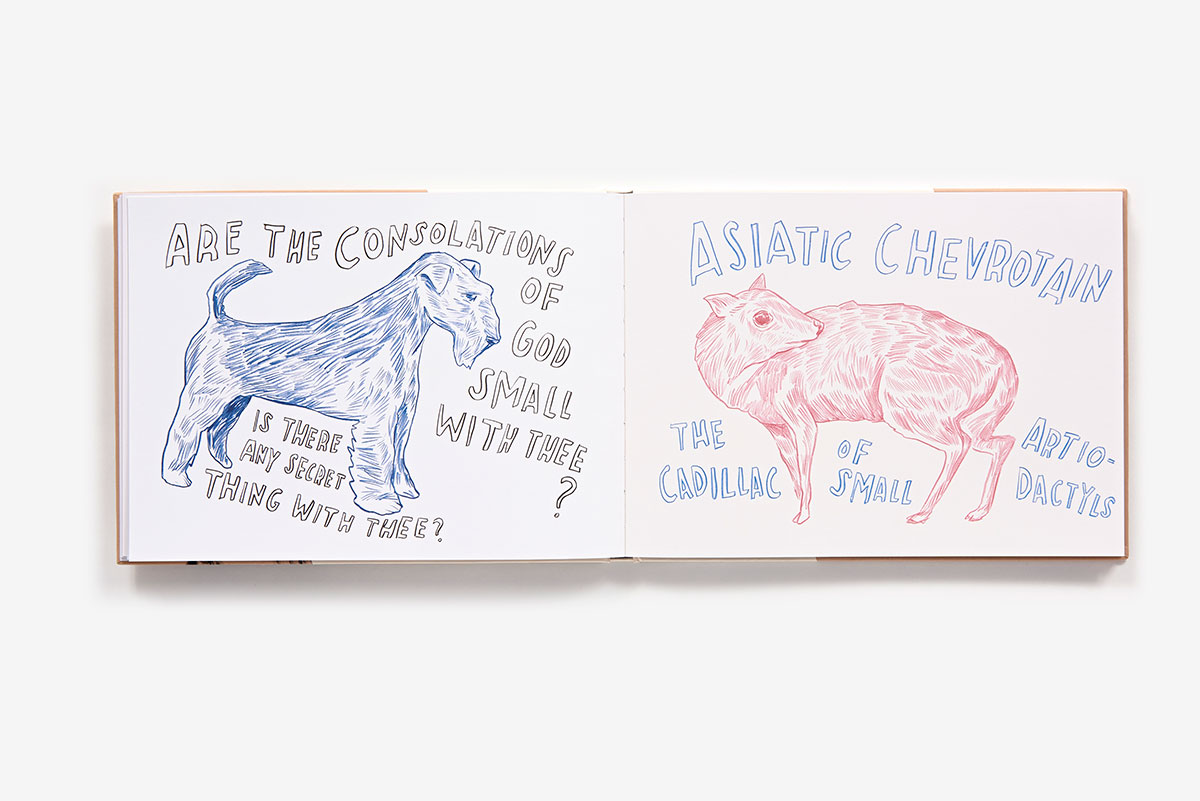 ARE THE CONSOLATIONS
OF
GOD
SMALL
WITH THEE
?
IS THERE
ANY SECRET
THING WITH THEE?
ASIATIC CHEVROTAIN
THE
CADILLAC
OF
SMALL
ARTIO-
DACTYLS